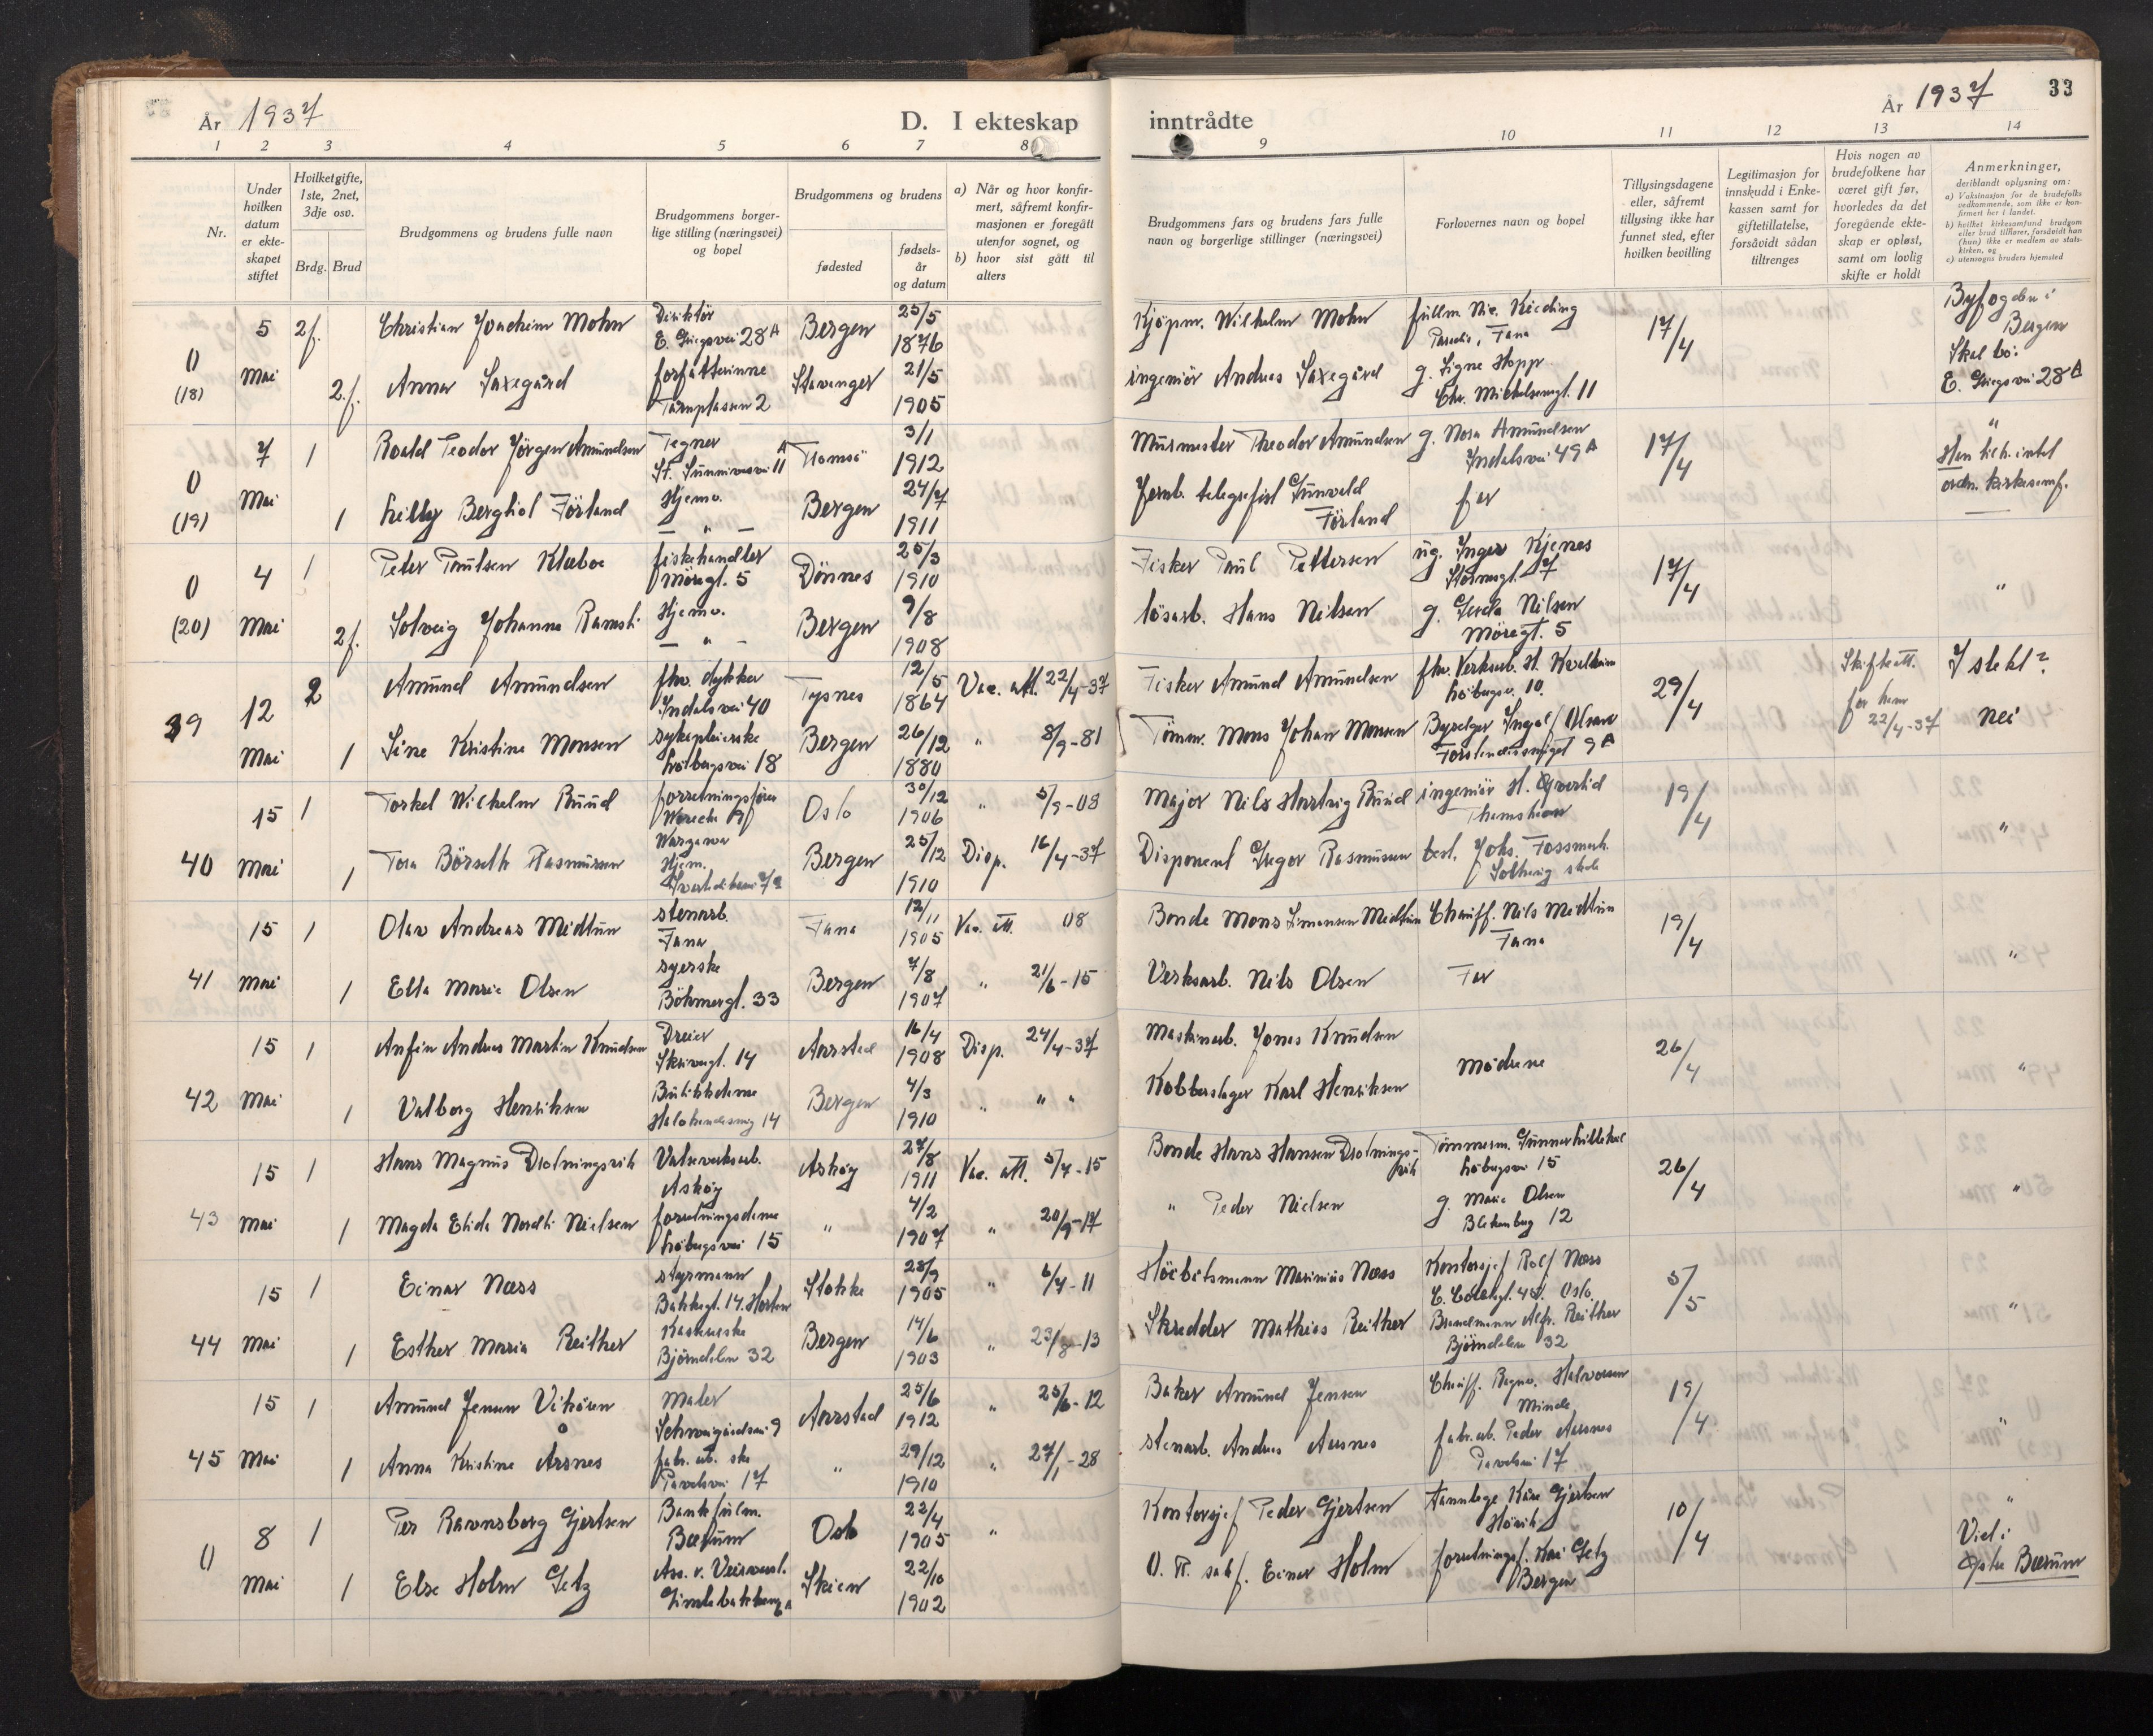 År 1937
D. I ekteskap
inntrådte
År 1937
33
1 2 3 4 5 6 7 8
9 10 11 12 13 14
Nr.
Under hvilken datum er ekteskapet stiftet
Hvilket gifte, 1ste, 2net, 3dje osv.
Brdg. Brud
Brudgommens og brudens fulle navn
Brudgommens borgerlige stilling (næringsvei) og bopel
Brudgommens og brudens
fødested
fødselsår og datum
a) Når og hvor konfirmert, såfremt konfirmasjonen er foregått utenfor sognet, og
b) hvor sist gått til alters
Brudgommens fars og brudens fars fulle navn og borgerlige stillinger (næringsvei)
Forlovernes navn og bopel
Tillysingsdagene eller, såfremt tillysing ikke har funnet sted, efter hvilken bevilling
Legitimasjon for innskudd i Enkekassen samt for giftetillatelse, forsåvidt sådan tiltrenges
Hvis nogen av brudefolkene har været gift før, hvorledes da det foregående ekteskap er opløst, samt om lovlig skifte er holdt
Anmerkninger, deriblandt oplysning om:
a) Vaksinasjon for de brudefolks vedkommende, som ikke er konfirmert her i landet.
b) hvilket kirkesamfund brudgom eller brud tilhører, forsåvidt han (hun) ikke er medlem av statskirken, og
c) utensogns bruders hjemsted
0 (18) 5 Mai 2f. Christian Joachim Mohn Direktør E. Griegsvei 28 A Bergen 25/5 1876 Kjöpm. Wilhelm Mohn fullm. Nic. Kieding Paradis, Fana 17/4 Byfogden i Bergen
2.f. Anna Saxegård forfatterinne Tårnplassen 2 Stavanger 21/5 1905 ingeniör Andreas Saxegård g. Signe Hopp Chr. Michelsensgt. 11 Skal bo: E. Griegsvei 28 A
0 (19) 7 Mai 1 Roald Teodor Jörgen Amundsen Tegner St. Sunnivasvei 11 A Tromsö 3/1 1912 Murmester Theodor Amundsen g. Nora Amundsen Indalsvei 49 A 17/4 "
1 Lilly Berghiol Förland Hjemv. - " - Bergen 24/7 1911 Jernb. telegrafist Gunvald Förland far Han tilh. intet ordn. kirkesamf.
0 (20) 4 Mai 1 Peter Paulsen Klæboe fiskehandler Möregt. 5 Dönnes 25/3 1910 Fisker Paul Pettersen ug. Inger Kjenes 17/4 "
2f. Solveig Johanne Ramsli Hjemv. - " - Bergen 9/8 1908 lösarb. Hans Nilsen g. Nilsen Möregt. 5
39 12 Mai 2 Amund Amundsen fhv. dykker Indalsvei 40 Tysnes 12/5 1864 Vac. att. 22/4-37 Fisker Amund Amundsen fhv. Verksarb. H. Kvalheim Löbergsv. 10. 29/4 Skifteatt. for ham 22/4-37 I slekt?
1 Sine Kristine Monsen sykepleierske Löbergsvei 18 Bergen 26/12 1880 " 8/9-81 Tömm. Mons Johan Monsen Byselger Ingolf Olsen 9 A nei
40 15 Mai 1 Torkel Wilhelm Ruud forretningsförer Oslo 30/12 1906 " 5/9-08 Major Nils Hartvig Ruud ingeniör H. 19/4 "
1 Tora Börseth Rasmussen Hjem. Bergen 25/12 1910 Disp. 16/4-37 Disponent Gregor Rasmussen best. Johs. Fossmark
41 15 Mai 1 Olav Andreas Midtun stenarb. Fana Fana 12/11 1905 Vac. att. 08 Bonde Mons Simonsen Midtun Chauff. Nils Midtun Fana 19/4 "
1 Ella Marie Olsen syerske Böhmergt. 33 Bergen 7/8 1907 " 21/6-15 Verksarb. Nils Olsen Far
42 15 Mai 1 Anfin Andreas Martin Knudsen Dreier Skrivergt. 14 Aarstad 16/4 1908 Disp. 24/4-37 Maskinarb. Jonas Knudsen Mödrene 26/4 "
1 Valborg Henriksen Butikkdame Bergen 4/3 1910 " " " Kobberslager Karl Henriksen
43 15 Mai 1 Hans Magnus Drotningsvik Valseverksarb. Askøy Askøy 27/8 1911 Vac. att. 5/7-15 Bonde Hans Hansen Drotningsvik Tömmerm. Gunnar Lillehol Löbergsvei 15 26/4 "
1 Magda Elida Nordli Nielsen forretningsdame Löbergsvei 15 " 4/2 1907 " 20/9-17 " Peder Nielsen g. Marie Olsen Blekenberg 12
44 15 Mai 1 Einar Næss styrmann Bakkegt. 14. Horten Stokke 28/9 1905 " 6/7-11 Marinius Næss Kontorsjef Rolf Næss Oslo. 5/5 "
1 Esther Maria Reither Björndalen 32 Bergen 14/6 1903 " 23/8-13 Skredder Mathias Reither Alfr. Reither Björndalen 32
45 15 Mai 1 Amund Jensen Vikören Maler Schweigårdsvei 9 Aarstad 25/6 1912 " 25/6-12 Baker Amund Jensen Chauff. Ragnv. Halvorsen Minde 19/4 "
1 Anna Kristine Årsnes fabr. arb. ske Pavelsvei 17 " 29/12 1910 " 27/1-28 stenarb. Andreas Aarsnes fabr. arb. Peder Aarsnes Pavelsvei 17
0 8 Mai 1 Per Ravnsborg Gjertsen Bankfulm. Bærum Oslo 22/4 1905 " Kontorsjef Peder Gjertsen tannlege Kåre Gjertsen Hövik 10/4 "
1 Else Holm Getz Ass. v. Skien 22/10 1902 O. R. sakf. Einar Holm forretningsf. Kai Getz Bergen Viet i Østre Bærum